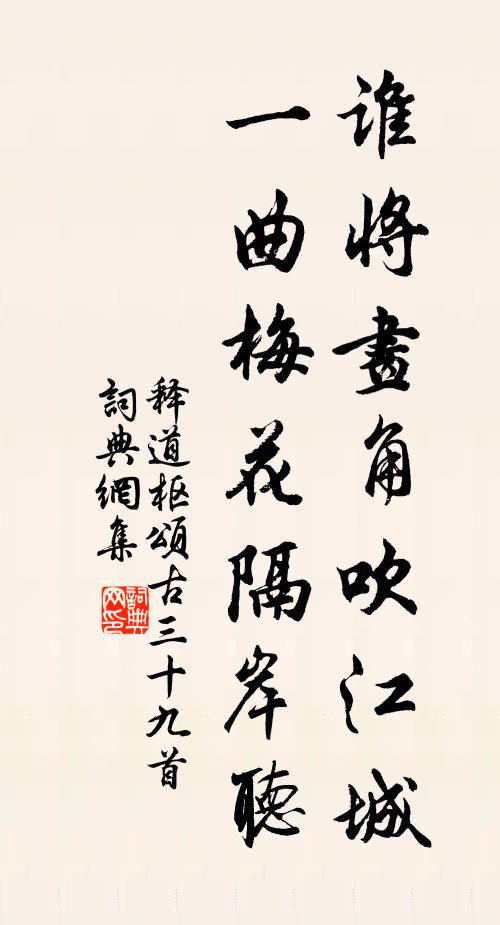 谁將畫角吹江城
一曲梅花隔岸聽
释道枢頌古三十九首
詞典網集
詞典网印